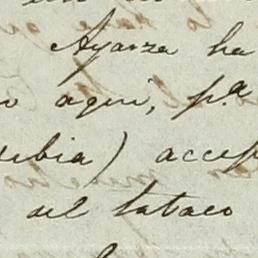 Ayarza ha
o aqui, p.ª
ubia) accep
del tabaco